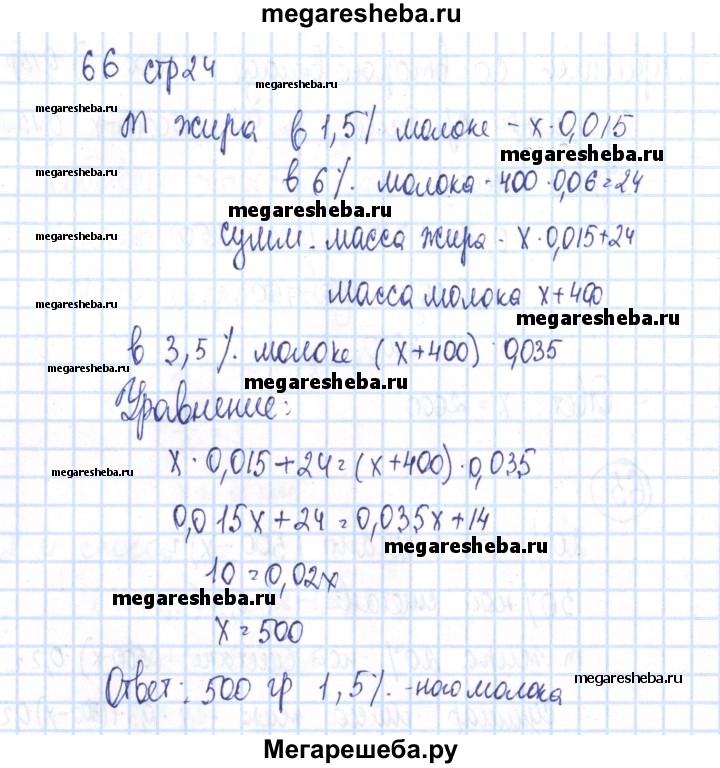 megaresheba.ru
66 стр 24
megaresheba.ru
megaresheba.ru
m жира в 1,5% молоке - x·0,015
megaresheba.ru
megaresheba.ru
в 6%. молока - 400·0,06=24
megaresheba.ru
megaresheba.ru
сумм. масса жира - x·0,015+24
megaresheba.ru
масса молока x+400
megaresheba.ru
в 3,5%. молоке (x+400)·0,035
megaresheba.ru
megaresheba.ru
Уравнение:
x·0,015+24=(x+400)·0,035
megaresheba.ru
0,015x+24=0,035x+14
megaresheba.ru
10=0,02x
megaresheba.ru
x=500
Ответ: 500 гр 1,5%.-ного молока
megaresheba.ru
Мегарешеба.ру